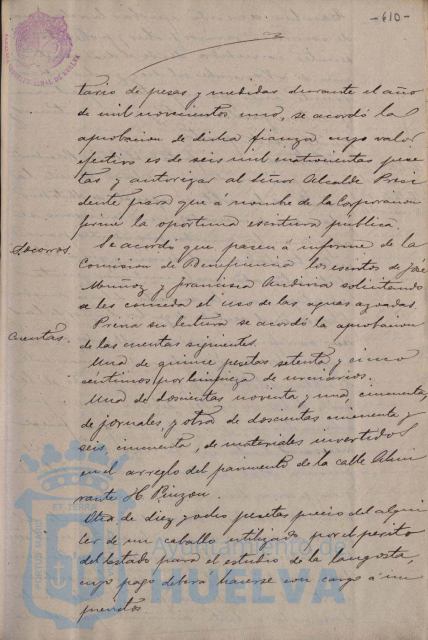 -610-
tario de pesas y medidas durante el año
de mil novecientos uno, se acordó la
aprobacion de dicha fianza cuyo valor
efectivo es de seis mil cuatrocientas pese
tas y autorizar al Señor Alcalde Presi
dente para que á nombre de la Corporacion
firme la oportuna escritura pública.
Socorros. Se acordó que pasen á informe de la
Comision de Beneficencia los escritos de José
Muñoz y Francisca solicitando
se les conceda el uso de las aguas azoadas.
Cuentas. Prévia su lectura se acordó la aprobacion
de las cuentas siguientes.
Una de quince pesetas setenta y cinco
céntimos por limpieza de urinarios.
Una de doscientas noventa y una, cincuenta
de jornales, y otra de doscientas cincuenta y
seis, cincuenta, de materiales invertidos
en el arreglo del pavimento de la calle Almi
rante H. Pinzon.
Otra de diez y ocho pesetas precio del alqui
ler de un caballo utilizado por el perito
del Estado para el estudio de la langosta,
cuyo pago deberá hacerse con cargo á im
previstos
Ayuntamiento de
HUELVA